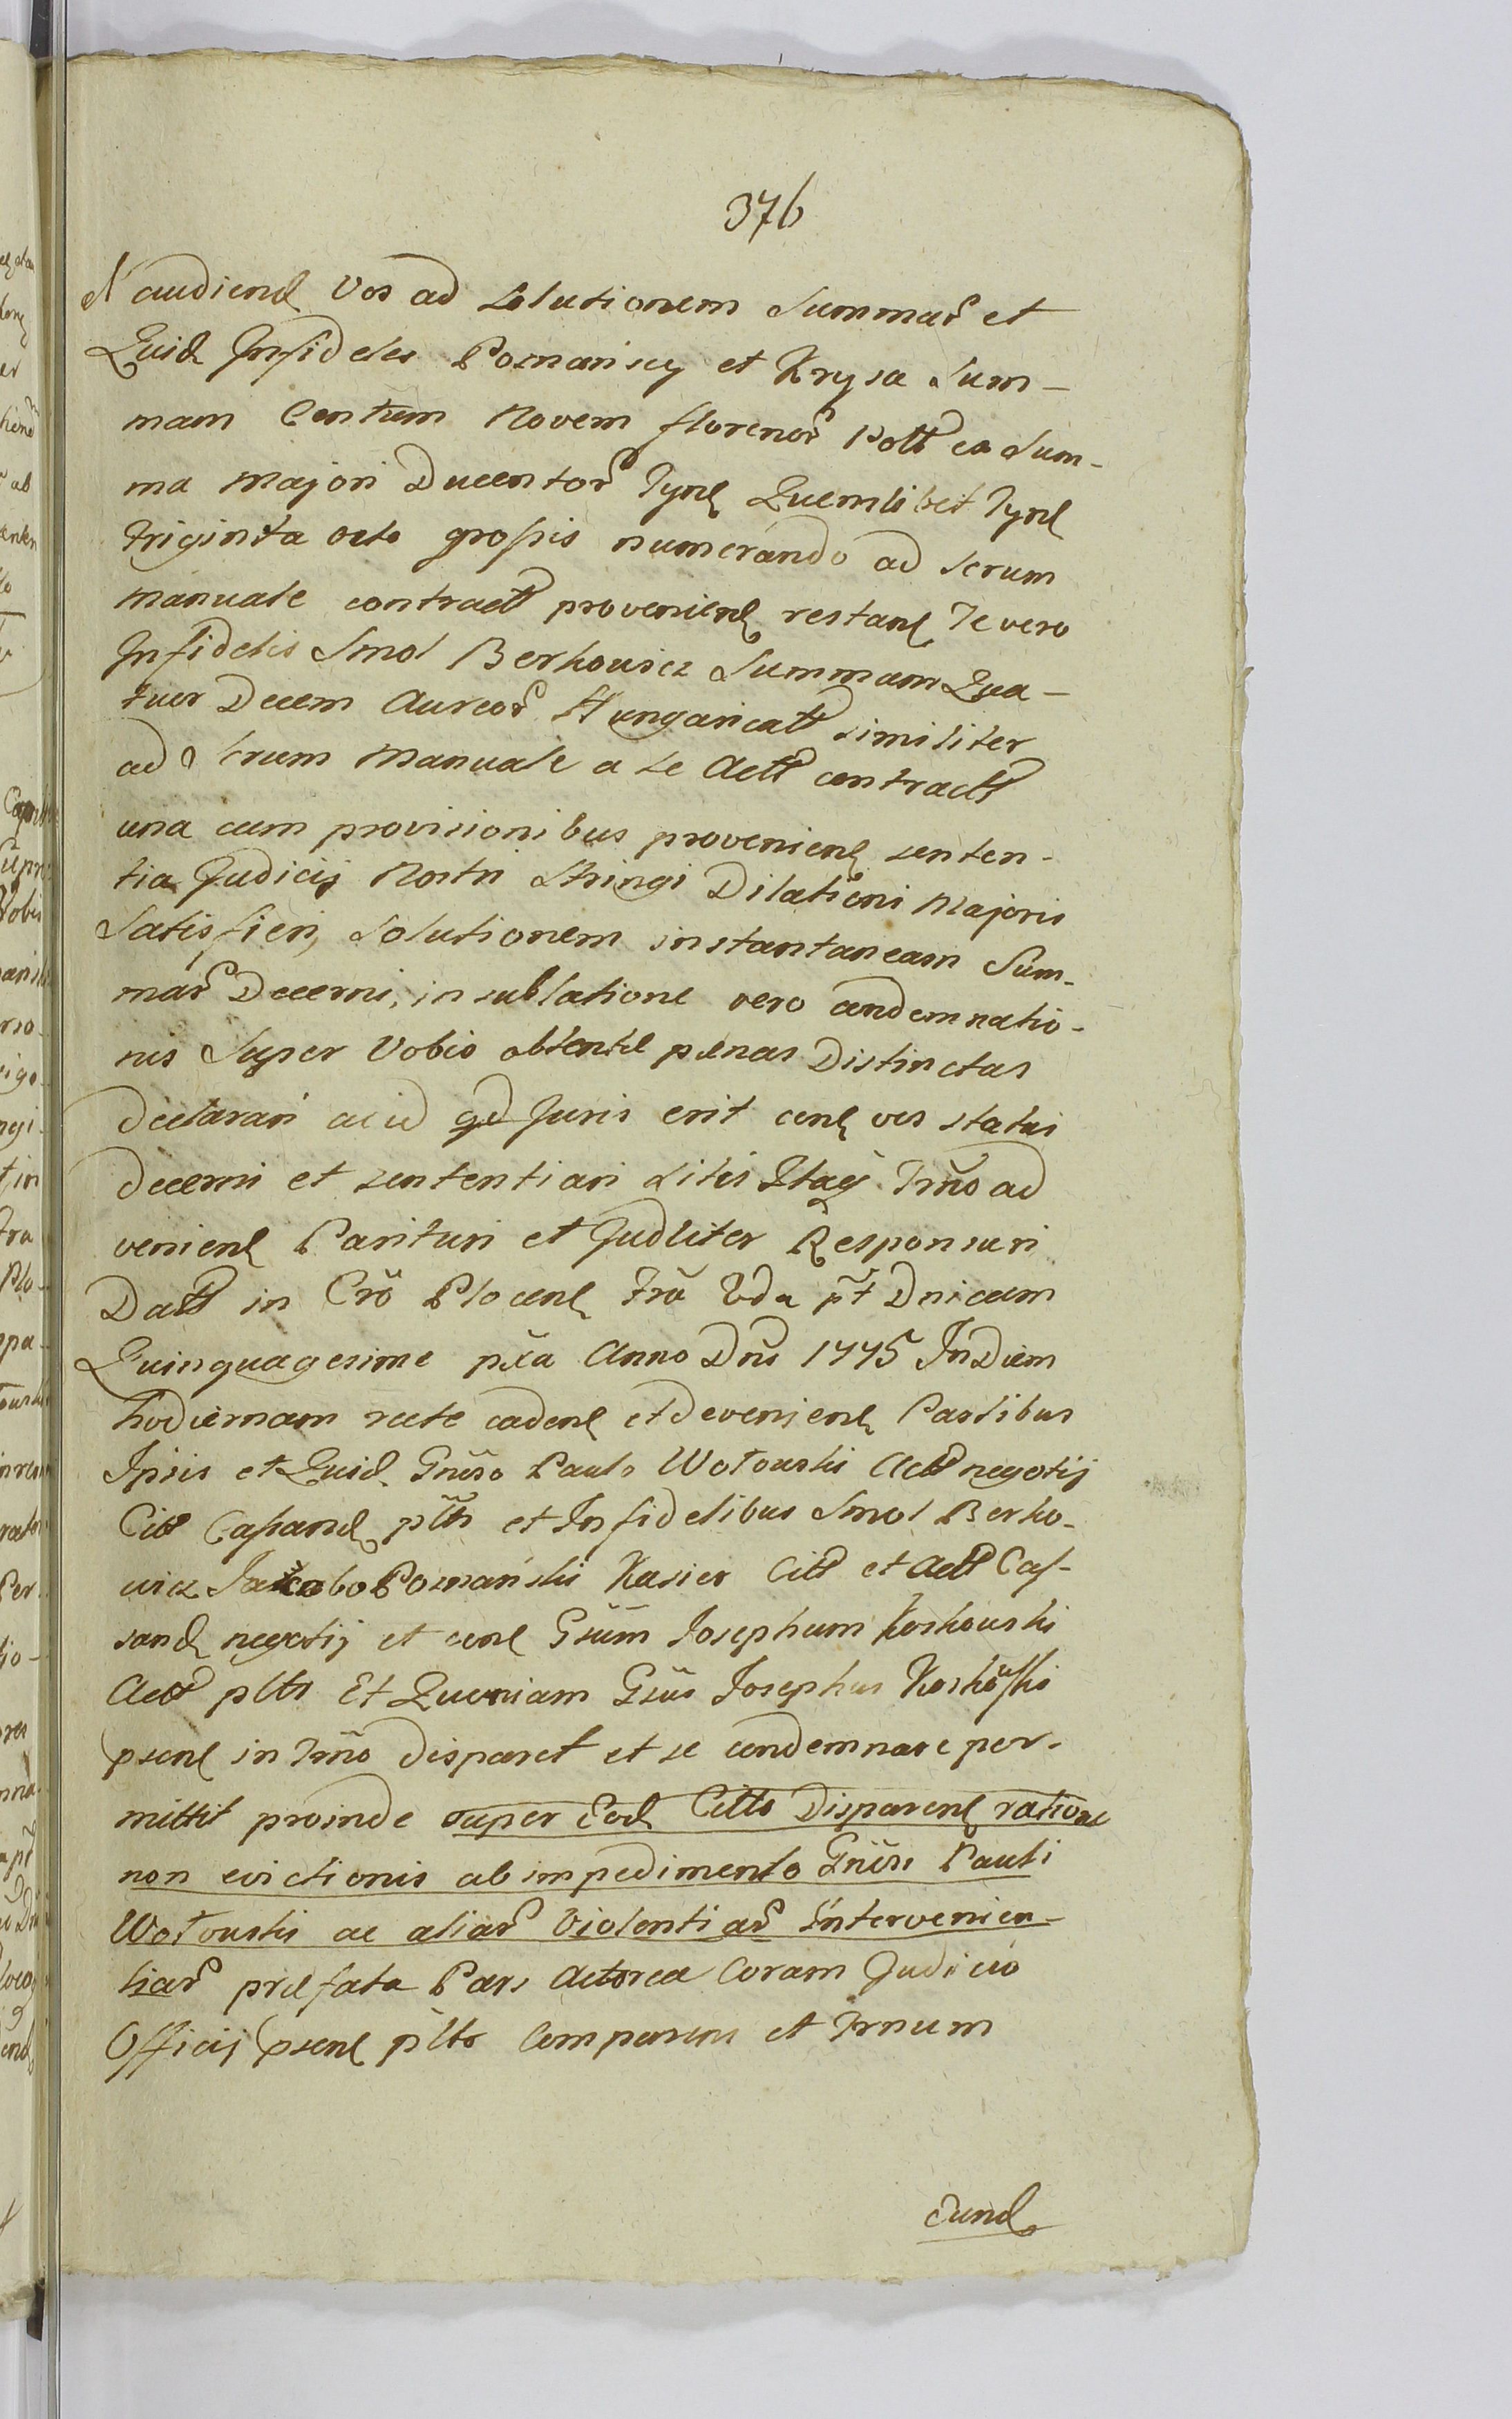 376
N audiend Vos ad Solutionem Summar et
Quid Infideles Poznańscy et Krysa Sum-
mam Centum Novem florenor Poll ex Sum-
ma majori Ducentor Tynf Quemlibet Tynf
triginta octo grossis numerando ad scrum
manuale contract provenient restant Te vero
Infidelis Smol Berkowicz Summam Qua-
tuor Decem Aureor Hungaricall similiter
ad scrum Manuale a te Act contract
una cum provisionibus provenient senten-
tia Judicij Nostri Stringi Dilationi Majoris
Satisfieri, Solutionem instantaneam Sum-
mar Decerni, in sublatione vero condemnatio-
nis Super Vobis obtentæ pænas Distinctas
declarari ac id qd Juris erit conc vos statui
decerni et sententiari Sitis Itaq Trno ad
venient Parituri et Judliter Responsuri
Datt in Cro Plocen fra 2da pt Dnicam
Quinquagesime pxa Anno Dni 1775 In Diem
hodiernam recte cadent et devenient Partibus
Ipsis et Quid Gnso Paulo Wołowski Act negotij
Citt Cassand pltr et Infidelibus Smol Berko-
wicz Jacobo Poznański Kasier Citt et Act Cas-
sand negotij et conc Gsum Josephum Koskowski
Act pltr Et Quoniam Gsus Josephus Koskowski
psens in Trno disparet et se condemnare per-
mittit proinde super Eod Citto Disparent ratione
non evictionis ab impedimento Gnsi Pauli
Wołowski ac aliar Violentiar Intervenien-
tiar præfata Pars Actorea Coram Judicio
Officij psent pltr Comparens et Trnum
eund